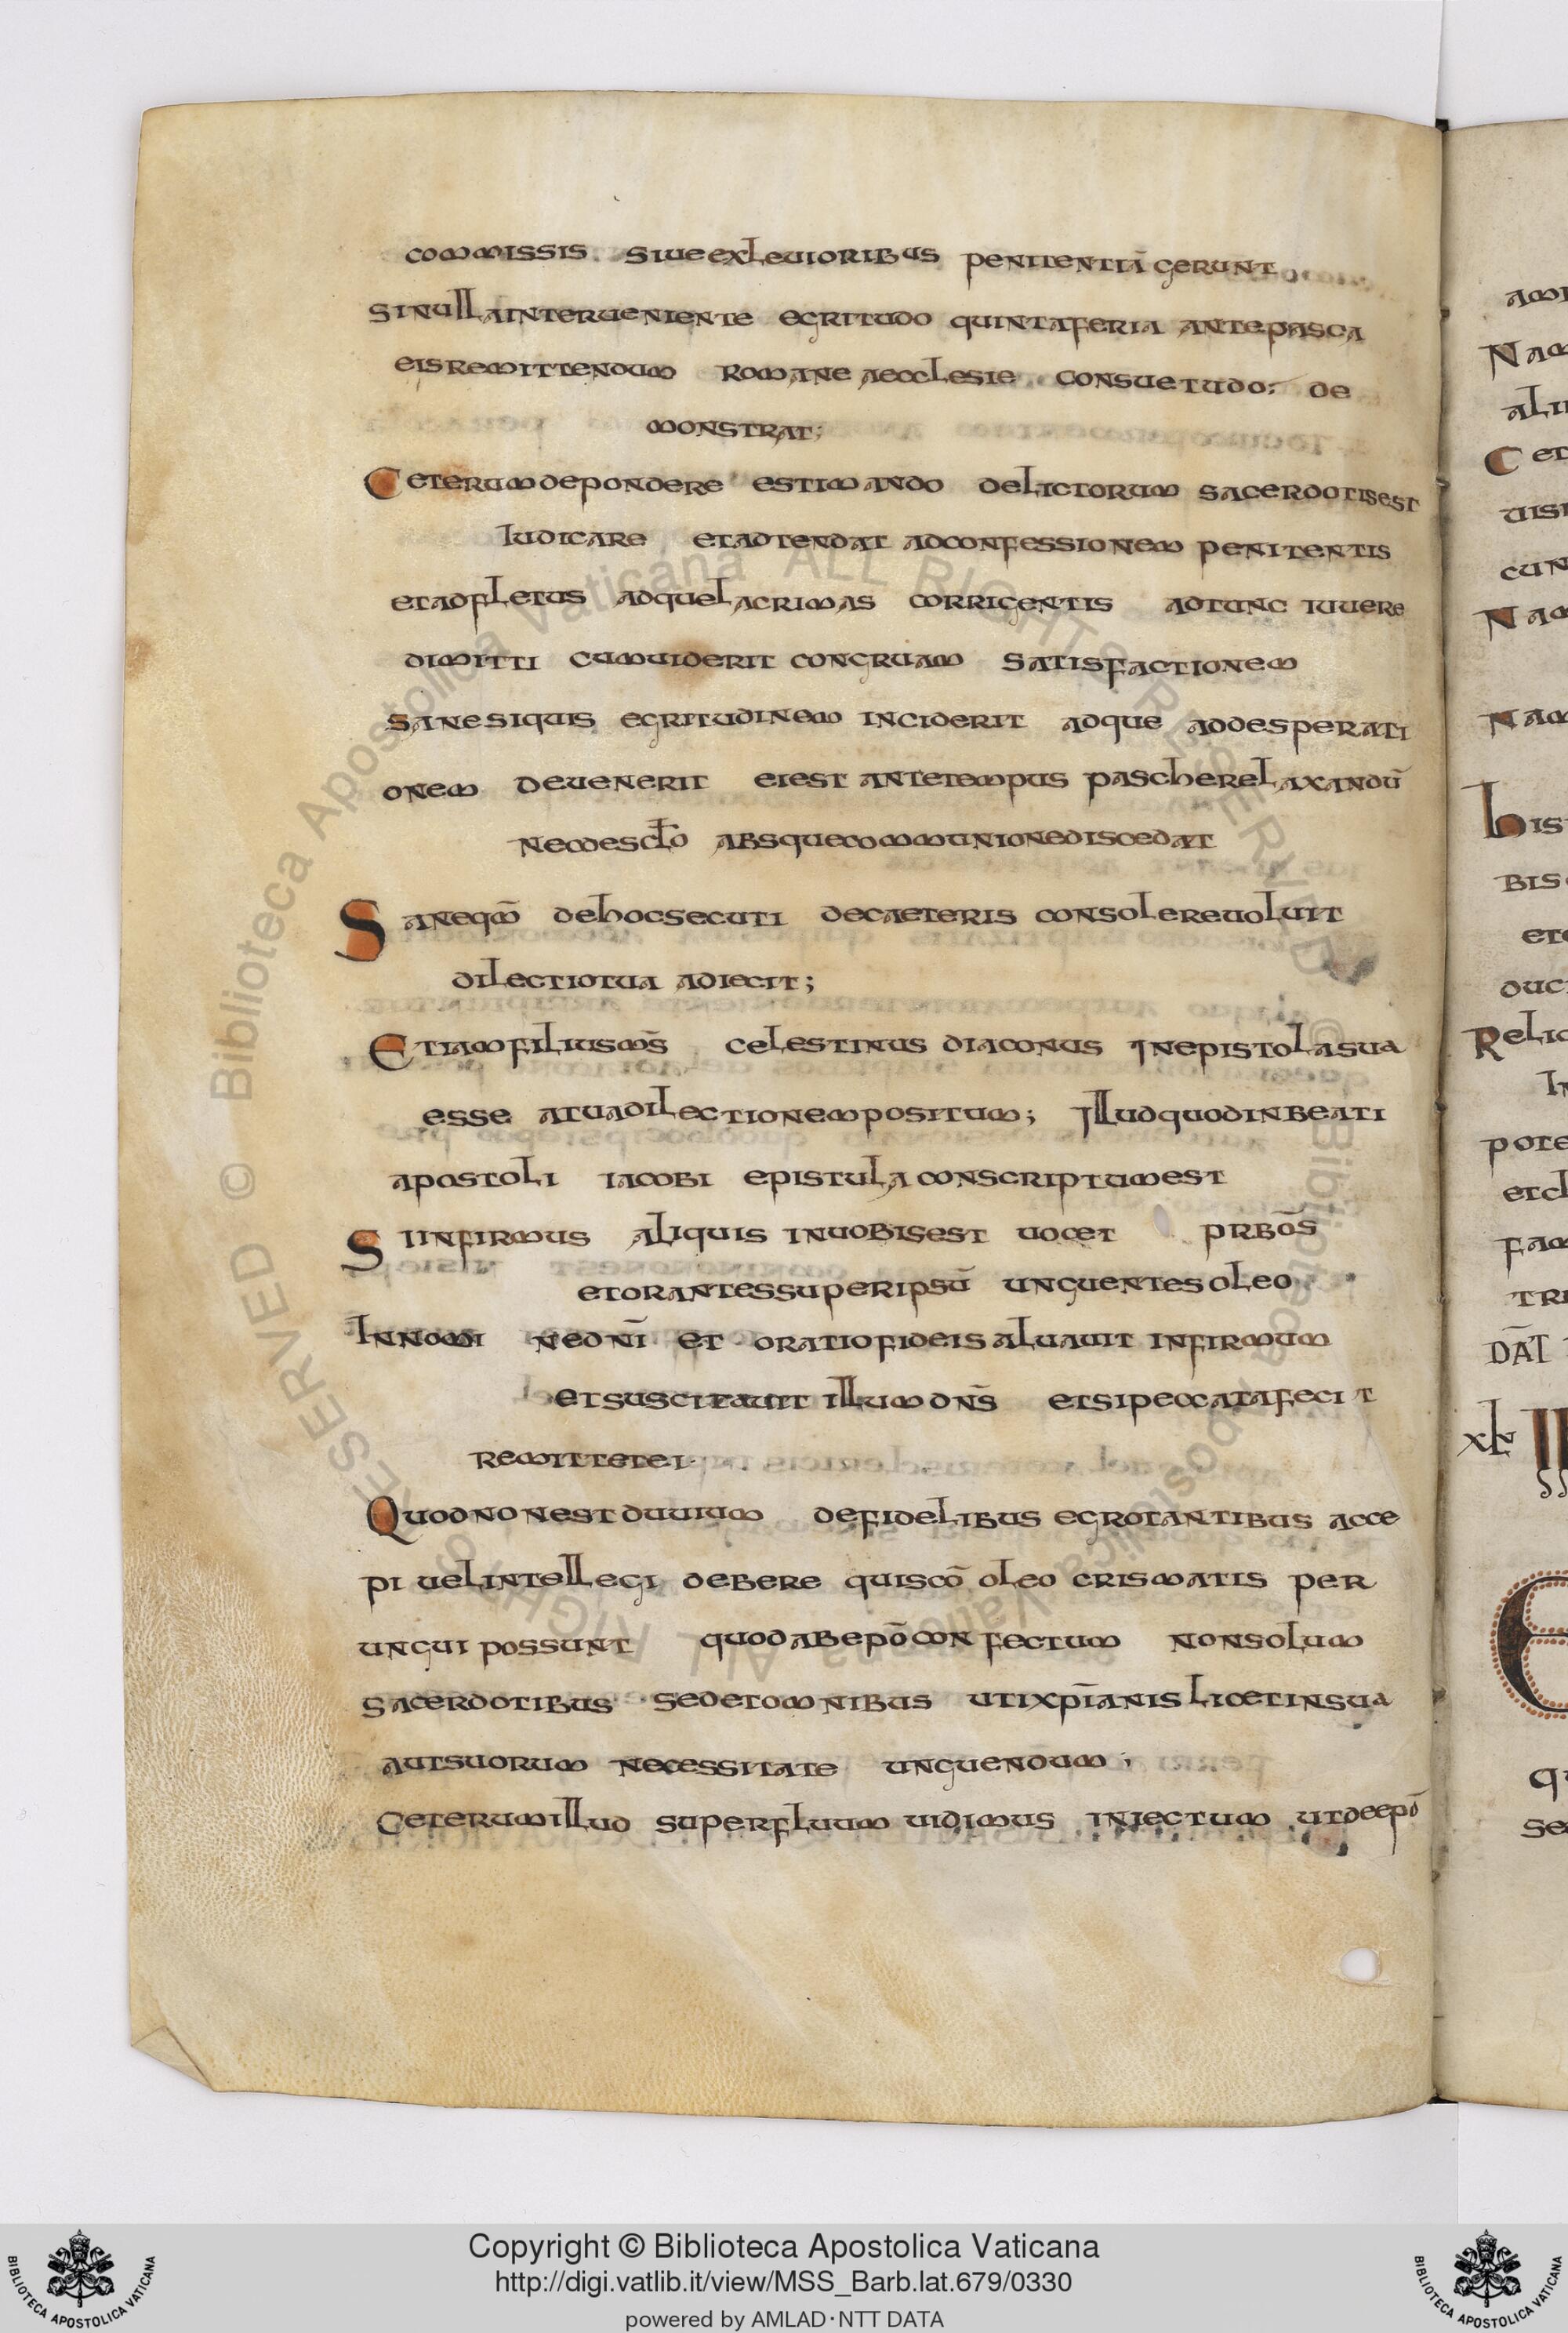 commissis siueexleuioribus penitentiā gerunt
sinullainterueniente egritudo quintaferia antepasca
eisremittendum romane aecclesie consuetudo: de
monstrat;
Ceterumdepondere estimando delictorum sacerdotisest
Iudicare etadtendat adconfessionem penitentis
etadfletus adquelacrimas corrigentis adtunc iuuere
dimitti cumuiderit congruam satisfactionem
sanesiquis egritudinem inciderit adque addesperati
onem deuenerit eiest antetempus pascherelaxandū
absquecommunionediscedat
Saneqm̄ dehocsecuti decaeteris consolereuoluit
dilectiotua adiecit;
Etiamfiliusms̄ celestinus diaconus Inepistolasua
esse atuadilectionempositum; Illudquodinbeati
apostoli iacobi epistula conscriptumest
Siinfirmus aliquis inuobisest uocet prbōs
etorantessuperipsū unguentesoleo
Innomi nednī et oratiofideisaluauit infirmum
etsuscitauit illumdns̄ etsipeccatafecit
remittetei
Quodnonestduuium defidelibus egrotantibus acce
pi uelintellegi debere quiscō oleo crismatis per
ungui possunt quodabepōconfectum nonsolum
sacerdotibus sedetomnibus utixpīanis licetinsua
autsuorum necessitate unguendum;
Ceterumillud superfluum uidimus injectum utdeepō
ami
Nam
ali
Cet
uisi
cun
Nam
Nam
his
bis
et
duc
Relic
In
pote
etcl
fam
tri
DĀT
E
qu
se
Copyright © Biblioteca Apostolica Vaticana
http://digi.vatlib.it/view/MSS_Barb.lat.679/0330
powered by AMLAD·NTT DATA
BIBLIOTECA APOSTOLICA VATICANA
BIBLIOTECA APOSTOLICA VATICANA